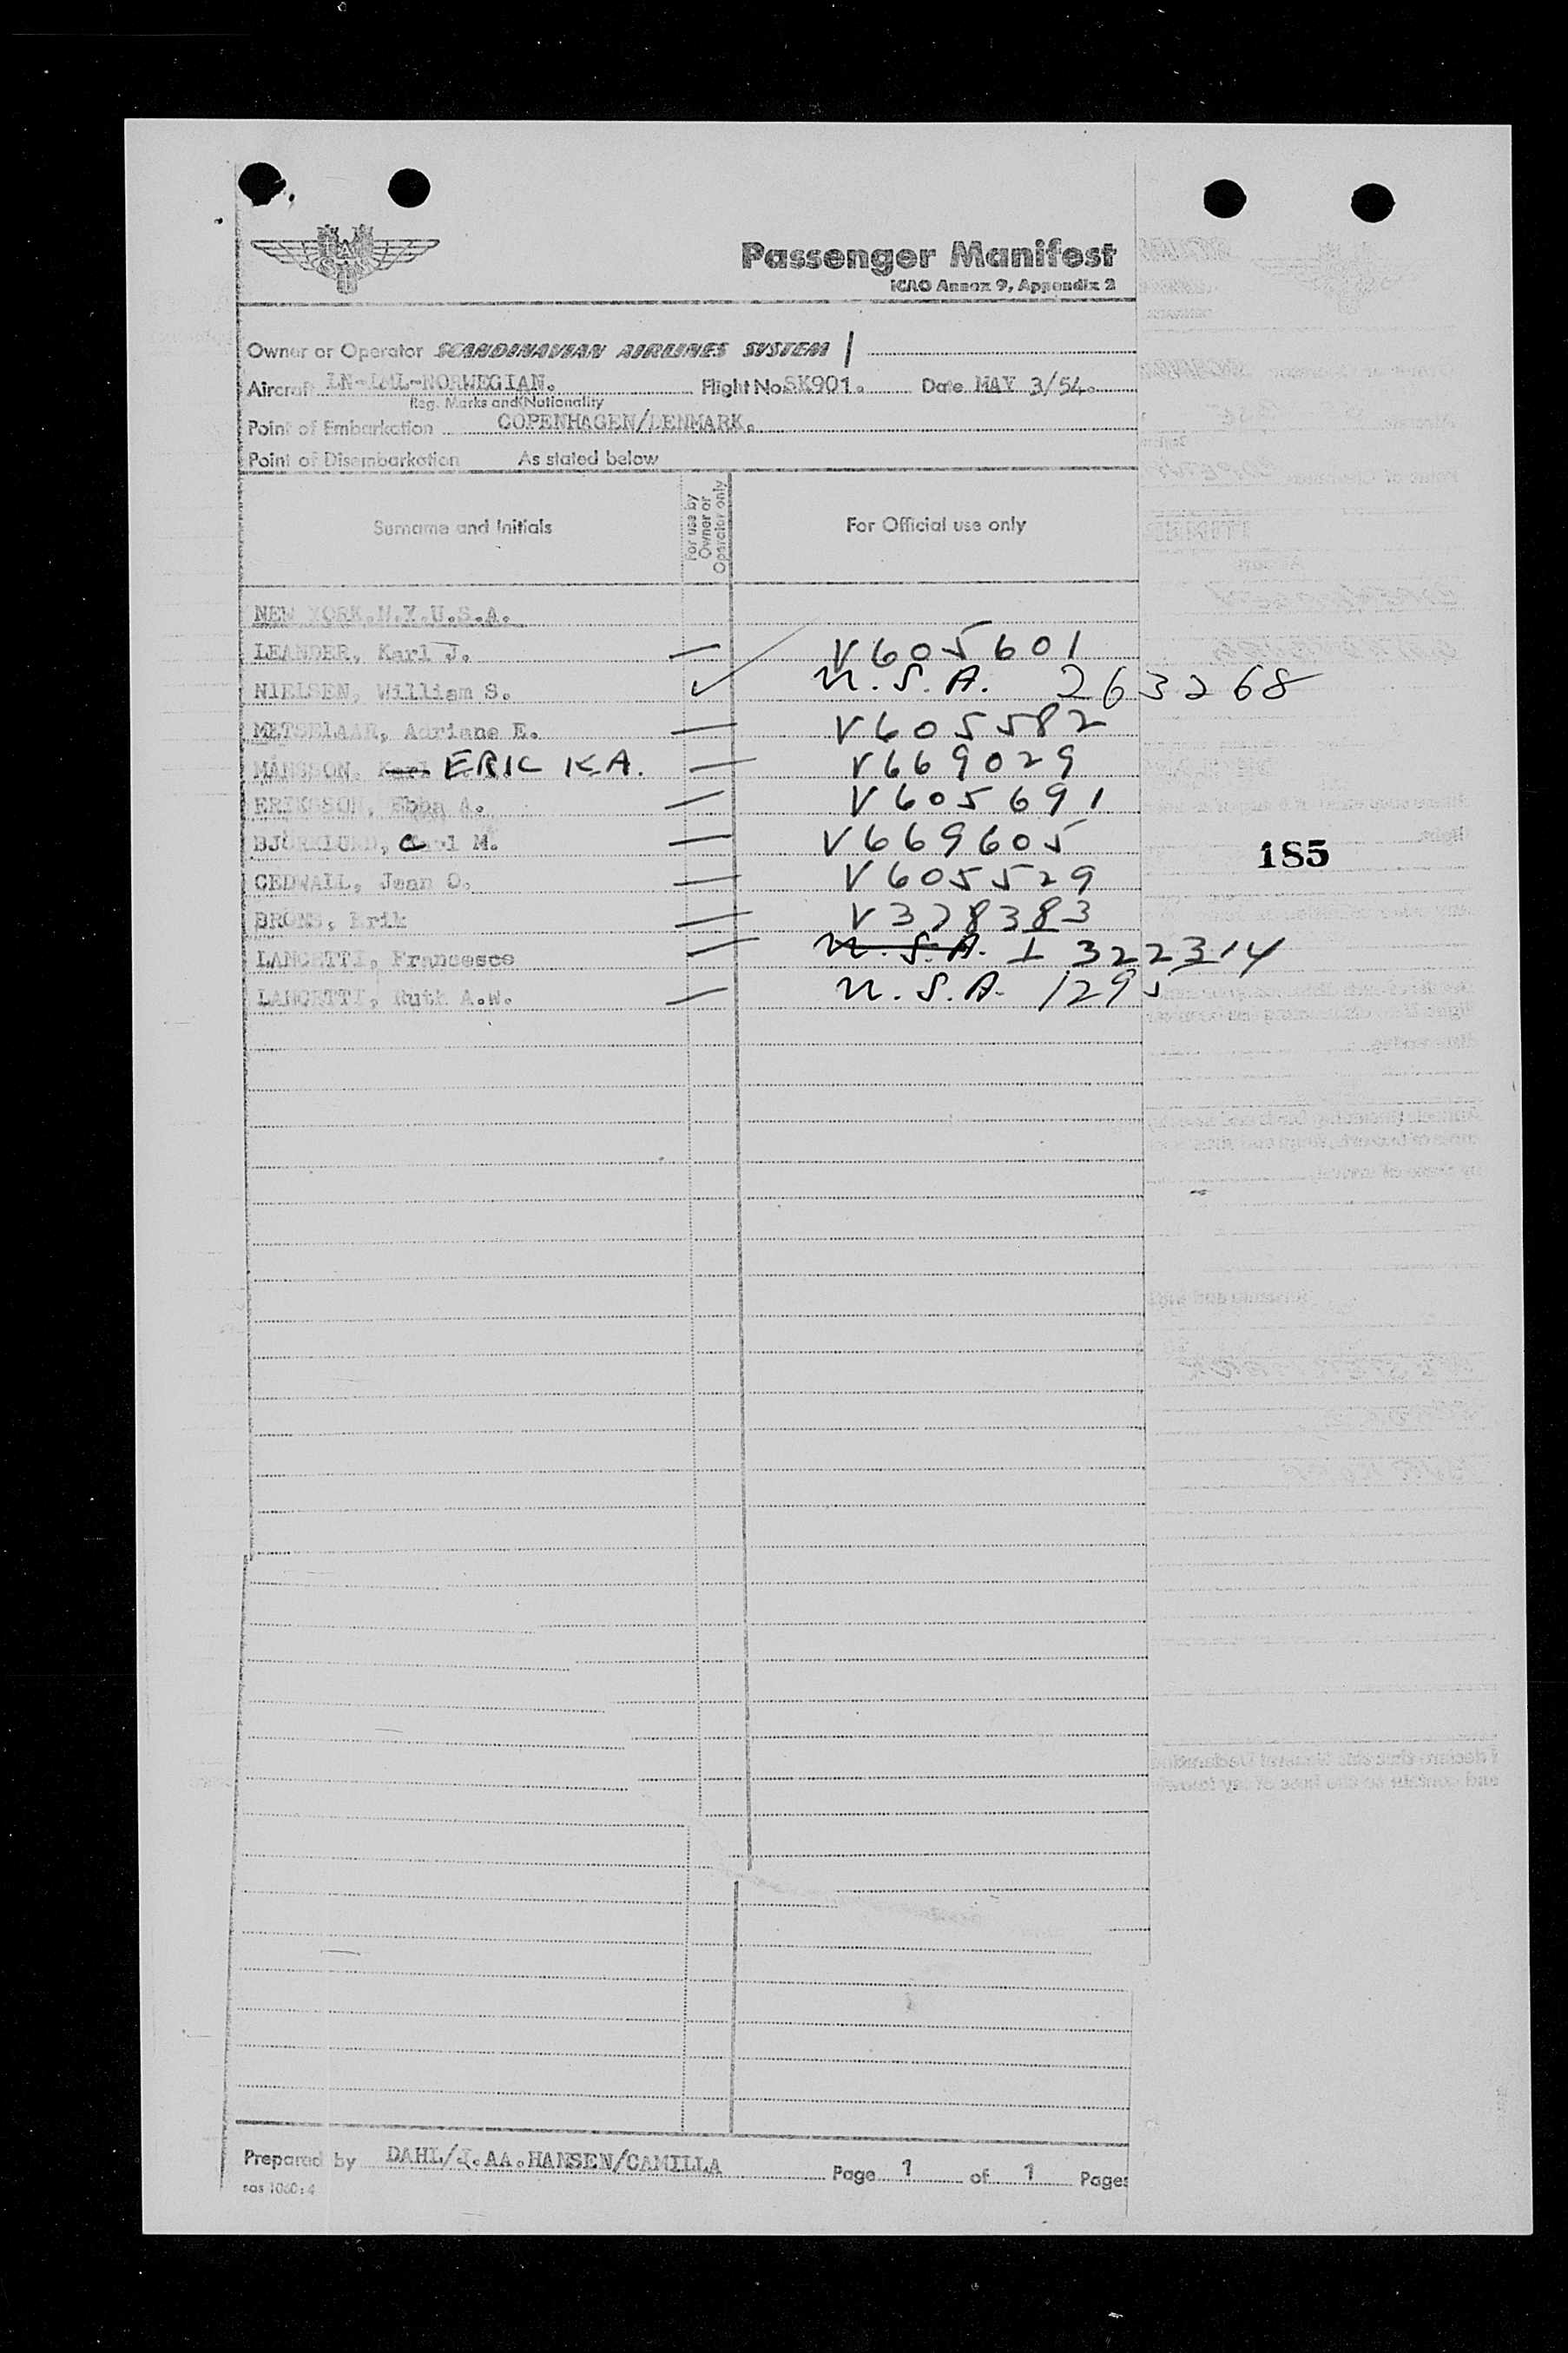 Passenger Manifest
ICAO Annex 9, Appendix 2
Owner or Operator SCANDINAVIAN AIRLINES SYSTEM
Aircraft LN-LML-NORWEGIAN. Flight No. SK901. Date MAY 3/54.
Reg. Marks and Nationality
Point of Embarkation COPENHAGEN/DENMARK.
Point of Disembarkation As stated below
Surname and Initials For use by Owner or Operator only For Official use only
NEW YORK.N.Y.U.S.A.
LEANDER, Karl J. — V605601
NIELSEN, William S. ✓ U.S.A. 263268
METSELAAR, Adriane E. — V605582
MANSSON, Karl ERIC K.A. — V669029
ERIKSSON, Ebba A. — V605691
BJÖRKLUND, Carl M. — V669605
185
CEDWALL, Jean O. — V605529
BROMS, Erik — V328383
LANCETTI, Francesco — U.S.A. I 322314
LANCETTI, Ruth A.W. — U.S.A. 1295
Prepared by DAHL/J.AA.HANSEN/CAMILLA Page 1 of 1 Pages
sas 1060:4